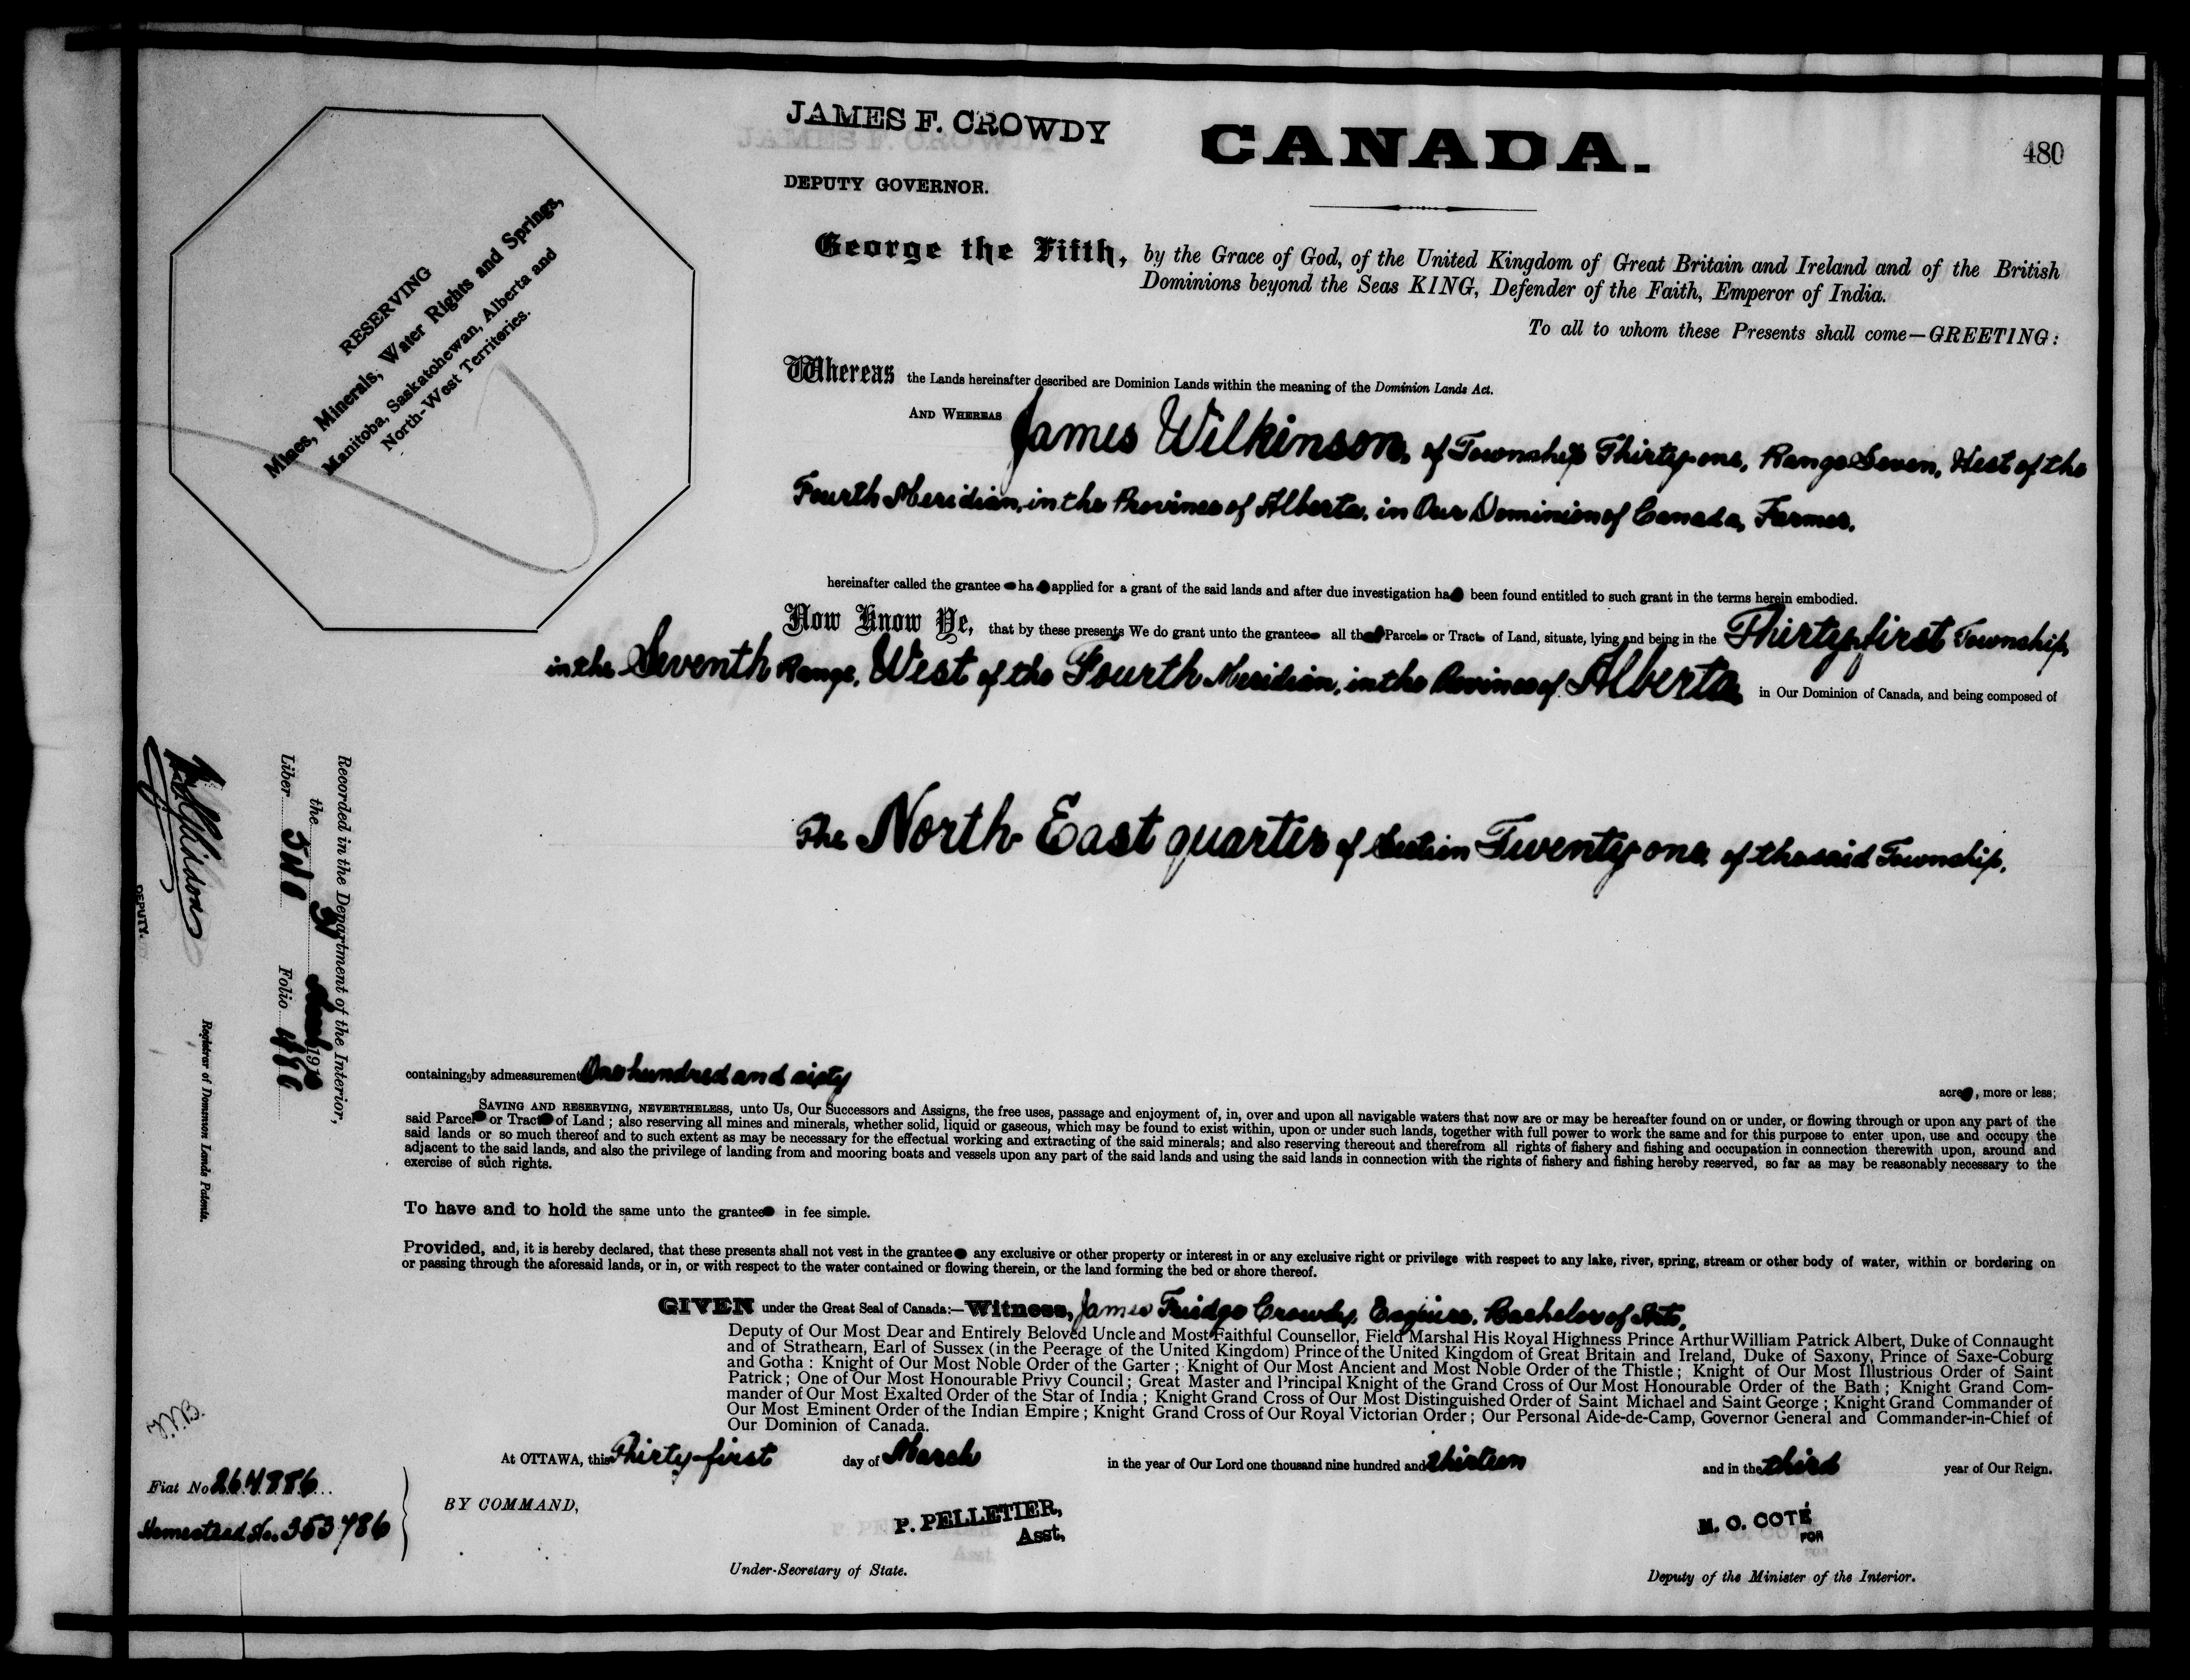 JAMES F. CROWDY
DEPUTY GOVERNOR.
CANADA.
480
RESERVING
Mines, Minerals, Water Rights and Springs,
Manitoba, Saskatchewan, Alberta and
North-West Territories.
George the Fifth, by the Grace of God, of the United Kingdom of Great Britain and Ireland and of the British
Dominions beyond the Seas KING, Defender of the Faith, Emperor of India.
To all to whom these Presents shall come—GREETING:
Whereas the Lands hereinafter described are Dominion Lands within the meaning of the Dominion Lands Act.
AND WHEREAS James Wilkinson, of Township Thirty-one, Range Seven, West of the
Fourth Meridian, in the Province of Alberta, in Our Dominion of Canada, Farmer,
hereinafter called the grantee ha applied for a grant of the said lands and after due investigation ha been found entitled to such grant in the terms herein embodied.
Now Know Ye, that by these presents We do grant unto the grantee all that Parcel or Tract of Land, situate, lying and being in the Thirty-first Township,
in the Seventh Range, West of the Fourth Meridian, in the Province of Alberta in Our Dominion of Canada, and being composed of
The North East quarter of Section Twenty one, of the said Township.
containing by admeasurement One hundred and sixty
acres, more or less;
SAVING AND RESERVING, NEVERTHELESS, unto Us, Our Successors and Assigns, the free uses, passage and enjoyment of, in, over and upon all navigable waters that now are or may be hereafter found on or under, or flowing through or upon any part of the
said Parcel or Tract of Land; also reserving all mines and minerals, whether solid, liquid or gaseous, which may be found to exist within, upon or under such lands, together with full power to work the same and for this purpose to enter upon, use and occupy the
said lands or so much thereof and to such extent as may be necessary for the effectual working and extracting of the said minerals; and also reserving thereout and therefrom all rights of fishery and fishing and occupation in connection therewith upon, around and
adjacent to the said lands, and also the privilege of landing from and mooring boats and vessels upon any part of the said lands and using the said lands in connection with the rights of fishery and fishing hereby reserved, so far as may be reasonably necessary to the
exercise of such rights.
To have and to hold the same unto the grantee in fee simple.
Provided, and, it is hereby declared, that these presents shall not vest in the grantee any exclusive or other property or interest in or any exclusive right or privilege with respect to any lake, river, spring, stream or other body of water, within or bordering on
or passing through the aforesaid lands, or in, or with respect to the water contained or flowing therein, or the land forming the bed or shore thereof.
GIVEN under the Great Seal of Canada:—Witness, James Fridge Crowdy, Esquire, Bachelor of Arts,
Deputy of Our Most Dear and Entirely Beloved Uncle and Most Faithful Counsellor, Field Marshal His Royal Highness Prince Arthur William Patrick Albert, Duke of Connaught
and of Strathearn, Earl of Sussex (in the Peerage of the United Kingdom) Prince of the United Kingdom of Great Britain and Ireland, Duke of Saxony, Prince of Saxe-Coburg
and Gotha: Knight of Our Most Noble Order of the Garter; Knight of Our Most Ancient and Most Noble Order of the Thistle; Knight of Our Most Illustrious Order of Saint
Patrick; One of Our Most Honourable Privy Council; Great Master and Principal Knight of the Grand Cross of Our Most Honourable Order of the Bath; Knight Grand Com-
mander of Our Most Exalted Order of the Star of India; Knight Grand Cross of Our Most Distinguished Order of Saint Michael and Saint George; Knight Grand Commander of
Our Most Eminent Order of the Indian Empire; Knight Grand Cross of Our Royal Victorian Order; Our Personal Aide-de-Camp, Governor General and Commander-in-Chief of
Our Dominion of Canada.
At OTTAWA, this Thirty-first day of March in the year of Our Lord one thousand nine hundred and thirteen and in the third year of Our Reign.
BY COMMAND,
P. PELLETIER,
Asst,
Under-Secretary of State.
N. O. COTÉ
FOR
Deputy of the Minister of the Interior.
Recorded in the Department of the Interior,
the 191
Liber Folio 480
DEPUTY.
Registrar of Dominion Lands Patents.
Fiat No 264886
Homestead No. 353786